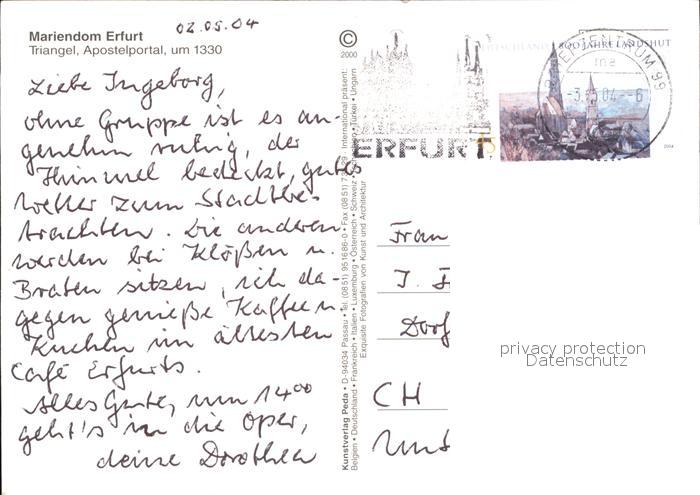 02.05.04
Mariendom Erfurt
Triangel, Apostelportal, um 1330
Liebe Ingeborg,
ohne Gruppe ist es an-
genehm ruhig, der
Himmel bedeckt, gutes
Wetter zum Stadtbe-
trachten. Die anderen
werden bei Klößen u.
Braten sitzen, ich da-
gegen genieße Kaffee u.
Kuchen im ältesten
Café Erfurts.
Alles Gute, um 14⁰⁰
geht's in die Oper,
deine Dorothea
© 2000
Kunstverlag Peda • D-94034 Passau • Tel. (0851) 951686-0 • Fax (0851)
Belgien • Deutschland • Frankreich • Italien • Luxemburg • Österreich • Schweiz • Türkei • Ungarn
International präsent:
Exquisite Fotografien von Kunst und Architektur
ERFURT
800 JAHRE LANDSHUT
BRIEFZENTRUM 99
ma
04 - 6
2004
Frau
Dorf
CH
privacy protection
Datenschutz